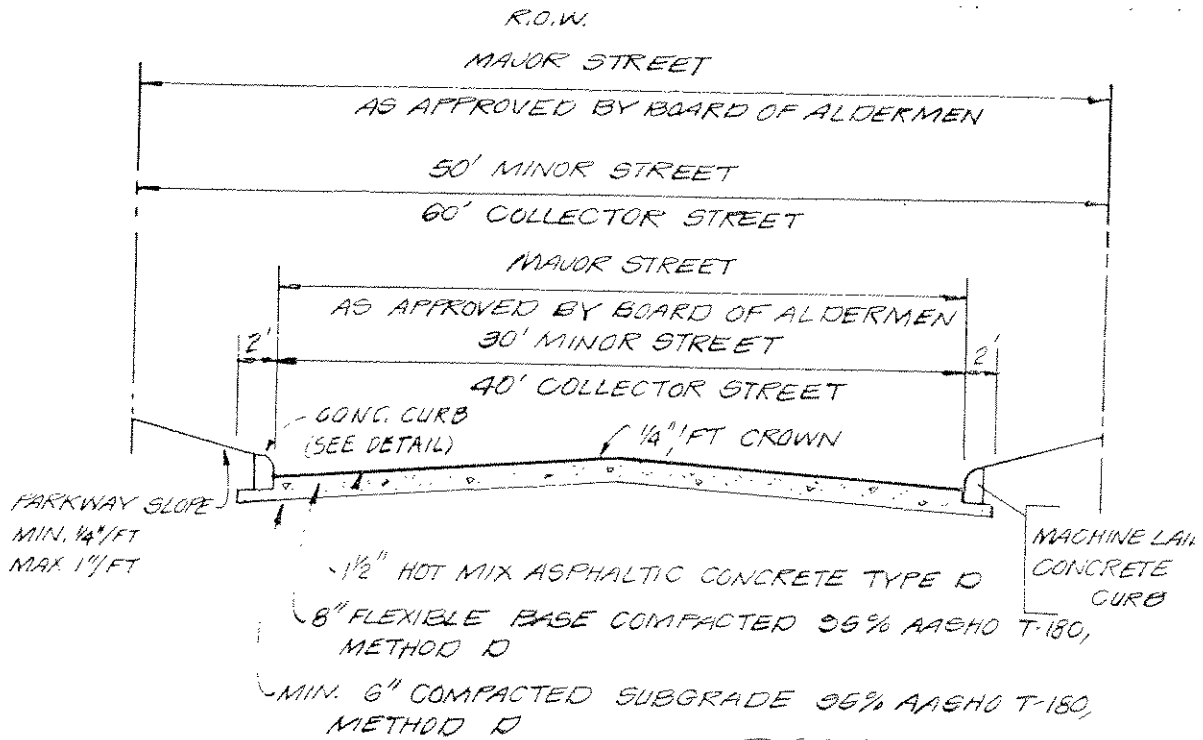 R.O.W.
MAJOR STREET
AS APPROVED BY BOARD OF ALDERMEN
50' MINOR STREET
60' COLLECTOR STREET
MAJOR STREET
AS APPROVED BY BOARD OF ALDERMEN
2'
30' MINOR STREET
2'
40' COLLECTOR STREET
CONC. CURB
(SEE DETAIL)
1/4"/FT CROWN
PARKWAY SLOPE
MIN. 1/4"/FT
MAX 1"/FT
MACHINE LAID
CONCRETE
CURB
1½" HOT MIX ASPHALTIC CONCRETE TYPE D
8" FLEXIBLE BASE COMPACTED 95% AASHO T-180,
METHOD D
MIN. 6" COMPACTED SUBGRADE 95% AASHO T-180,
METHOD D